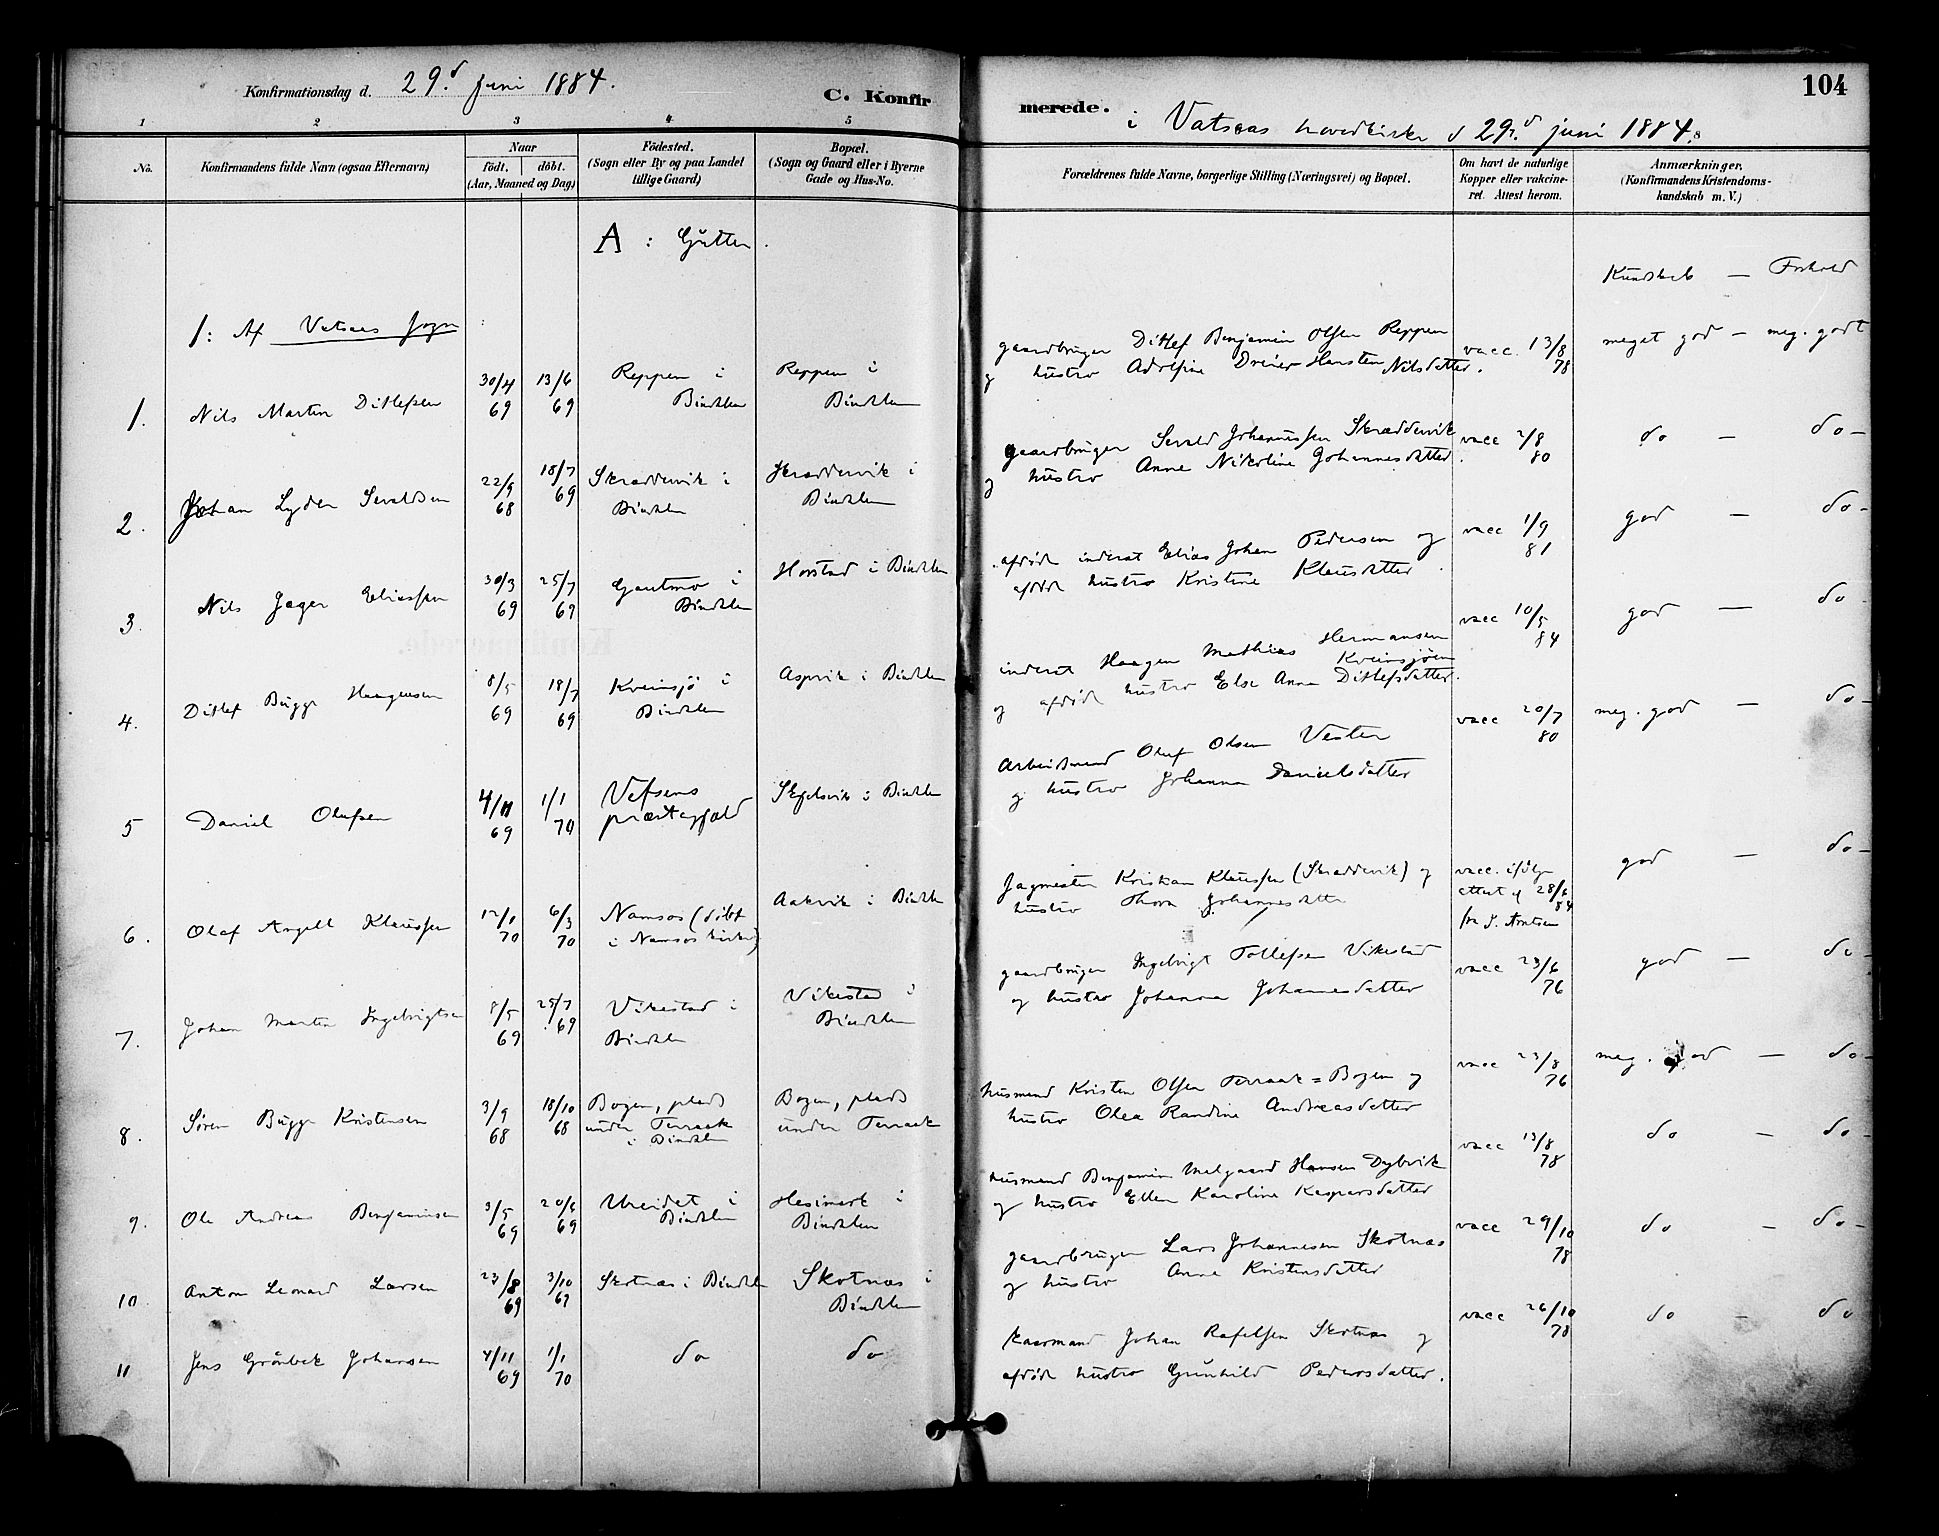 Konfirmationsdag d. 29d Juni 1884.
C. Konfir
1 2 3 4 5
No.
Konfirmandens fulde Navn (ogsaa Efternavn)
Naar
födt. döbt.
(Aar, Maaned og Dag)
Födested.
(Sogn eller By og paa Landet
tillige Gaard)
Bopæl.
(Sogn og Gaard eller i Byerne
Gade og Hus-No.
A : Gutter.
1: Af Vatsaas Sogn :
1. Nils Martin Ditlefsen 30/4 69 13/6 69 Reppen i Bindalen Reppen i Bindalen
2. Johan Lyder Sevaldsen 22/9 68 18/7 69 Skraddervik i Bindalen Skraddervik i Bindalen
3. Nils Jager Eliassen 30/3 69 25/7 69 Gautmo i Bindalen Horstad i Bindalen
4. Ditlef Bugge Haagensen 8/5 69 18/7 69 Kveinsjö i Bindalen Aspvik i Bindalen
5 Daniel Olufsen 4/11 69 1/1 70 Vefsens præstegjæld i Bindalen
6. Olaf Angell Klaussen 12/1 70 6/3 70 Namsos (döbt i Namsos kirke) Aakvik i Bindalen
7. Johan Martin Ingebrigtsen 8/5 69 25/7 69 Vikestad i Bindalen Vikestad i Bindalen
8. Sören Bugge Kristensen 3/9 68 18/10 68 Bogen, plads under Terraak i Bindalen Bogen, plads under Terraak
9. Ole Andreas Benjaminsen 3/5 69 20/6 69 Ureidet i Bindalen Hesimark i Bindalen
10. Anton Leonard Larsen 23/8 69 3/10 69 Skotnæs i Bindalen Skotnæs i Bindalen
11 Jens Grönbek Johansen 4/11 69 1/1 70 do do
104
merede. i Vatsaas hovedkirke d 29d juni 1884.
8
Forældrenes fulde Navne, borgerlige Stilling (Næringsvei) og Bopæl.
Om havt de naturlige
Kopper eller vakcine-
ret. Attest herom.
Anmærkninger.
(Konfirmandens Kristendoms-
kundskab m. V.)
Kundskab — Forhold
gaardbruger Ditlef Benjamin Olsen Reppen vacc. 13/8 78 meget god — meg. godt
og hustro Adolfine Dreier Hansten Nilsdatter.
gaardbruger Sevald Johannessen Skraddervik vacc 2/8 80 do — do —
og hustro Anne Nikoline Johannesdatter.
afdöde inderst Elias Johan Pedersen og vacc 1/9 81 god — do —
afdöde hustro Kristine Klausdatter.
inderst Haagen Mathias Hermansen Kveinsjöen vacc 10/5 84 god — do
og afdöde hustro Else Anna Ditlefsdatter.
Arbeidsmand Oluf Olsen Vesten vacc 20/7 80 meg. god — do —
og hustro Johanna Danielsdatter
Sagmester Kristian Klaussen (Skraddervik) og vacc. ifölge attest af 28/6 84 fra J. Arntsen god — do —
hustro Thora Johannesdatter
gaardbruger Ingebrigt Tollefsen Vikestad vacc 23/6 76 god — do —
og hustro Johanna Johannesdatter
husmand Kristen Olsen Terraak=Bogen og vacc 23/8 76 meg. god — do —
hustro Olea Randine Andreasdatter
husmand Benjamin Melgaard Hansen Dybvik vacc 13/8 78 do — do —
og hustro Ellen Karoline Kaspersdatter
gaardbruger Lars Johannesen Skotnæs vacc 29/10 78 do — do —
og hustro Anne Kristensdatter
kaarmand Johan Rafelsen Skotnæs og vacc 26/10 78 do — do
afdöde hustro Gunhild Pedersdatter.